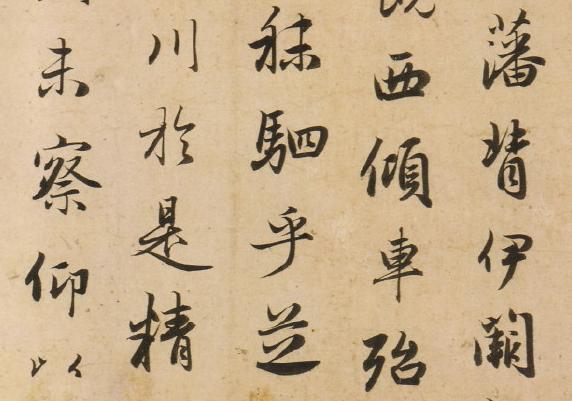 藩背伊闕
西傾車殆
秣駟乎芝
川於是精
未察仰以